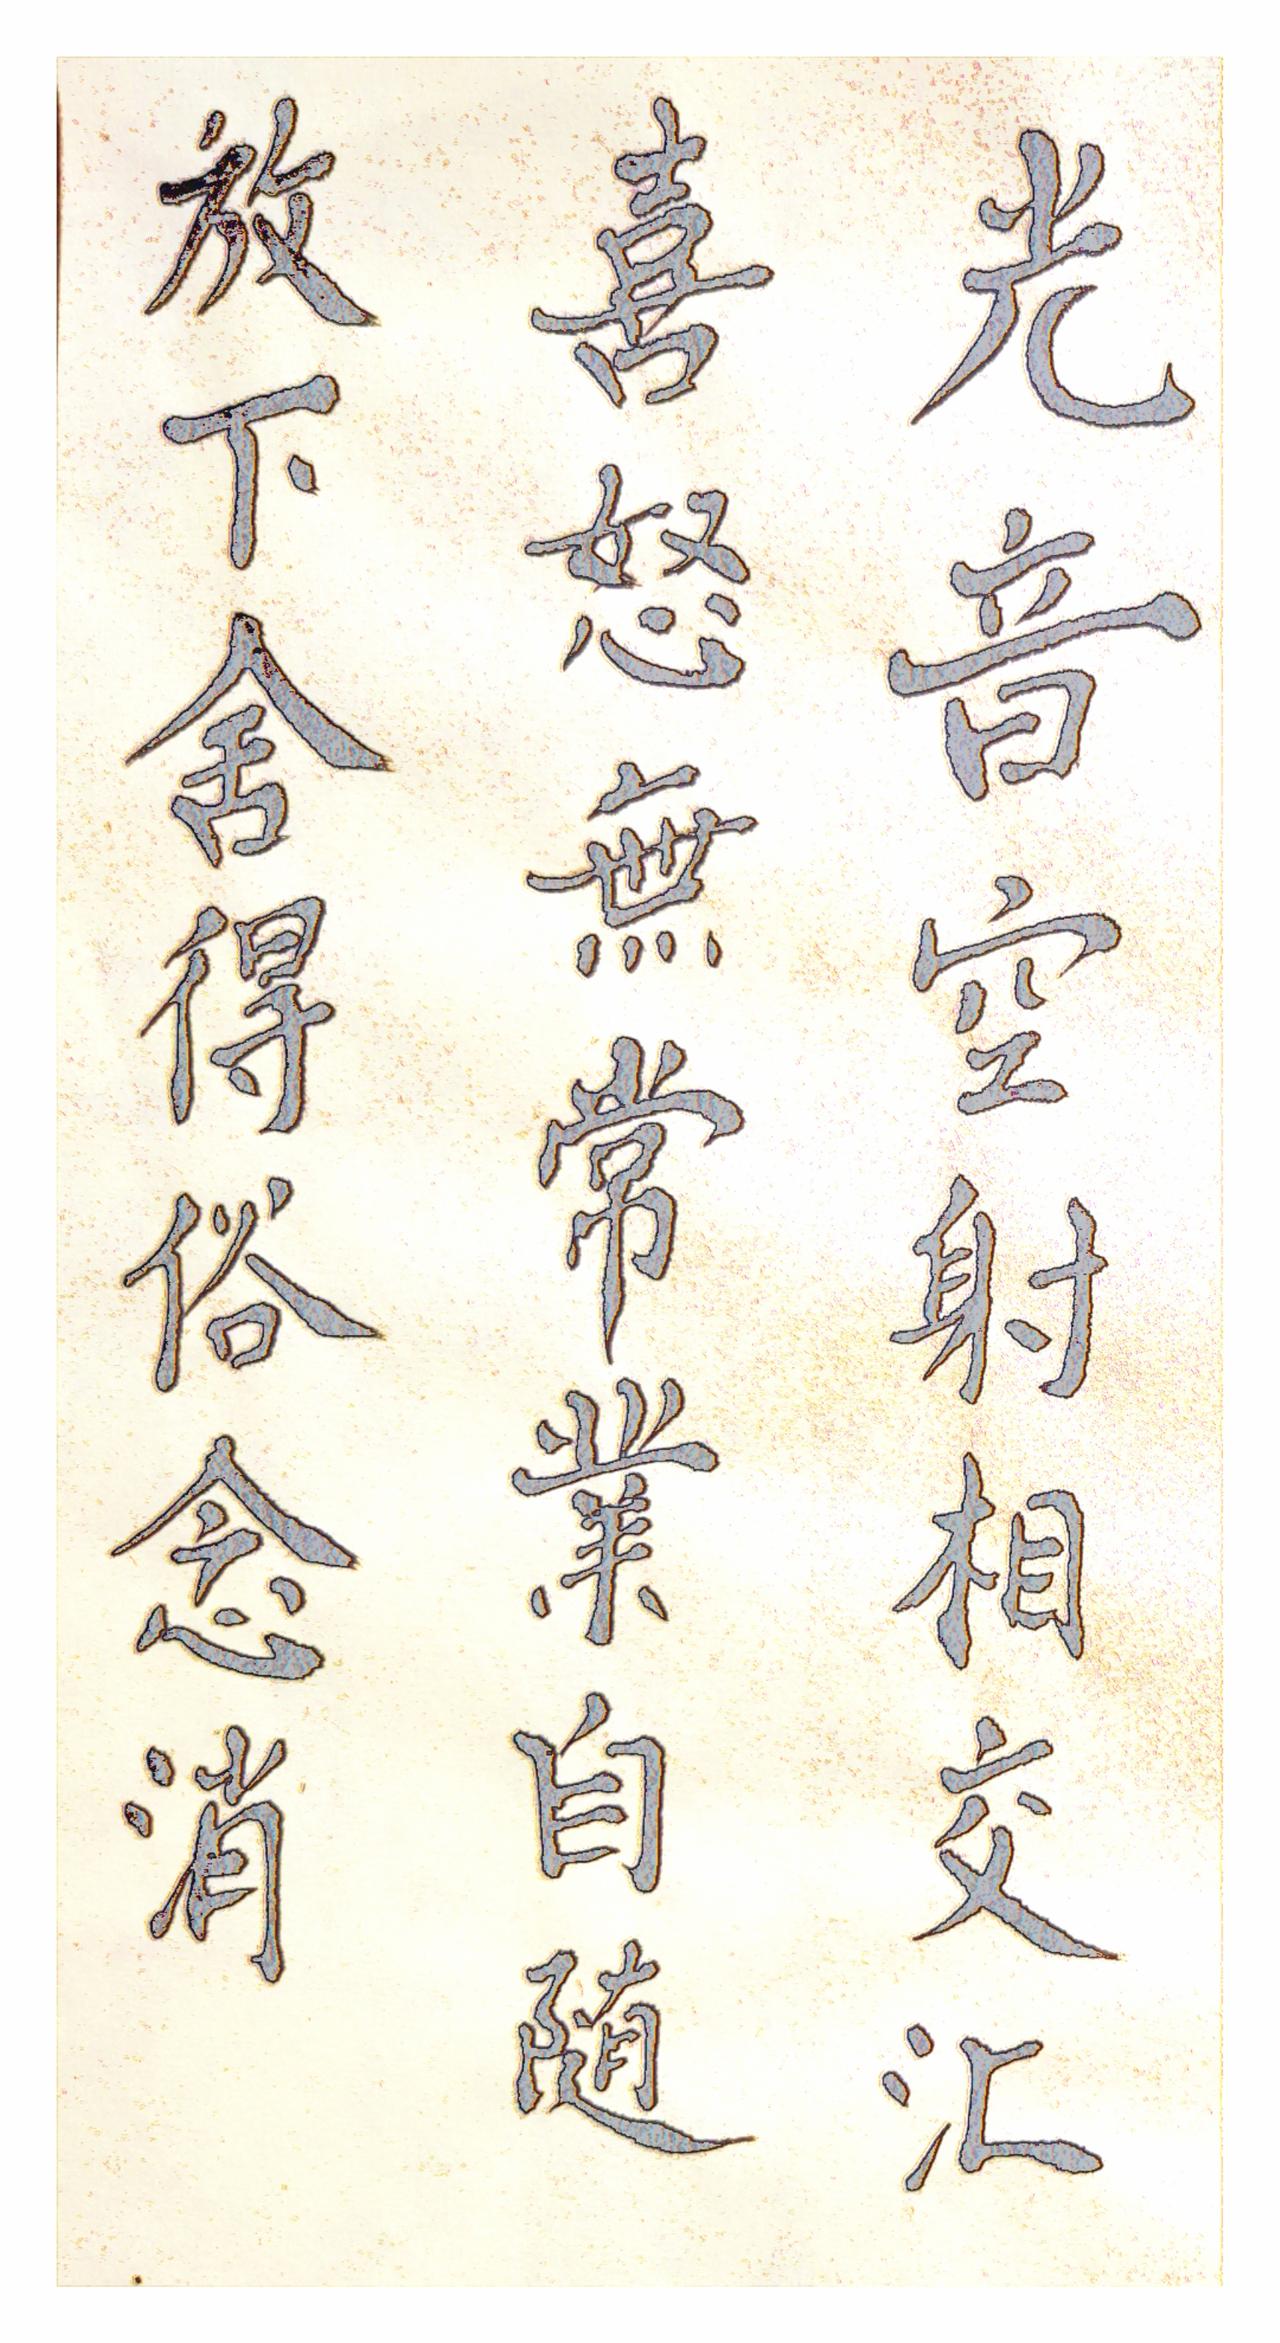 光音空射相交汇
喜怒無常業自随
放下舍得俗念消